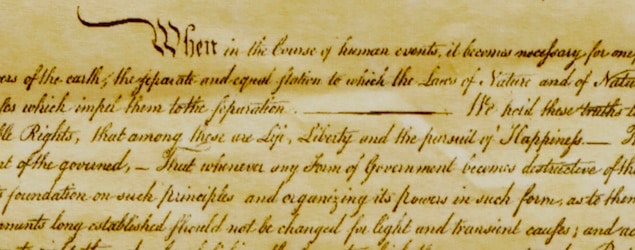 When in the Course of human events, it becomes necessary for one
ers of the earth, the separate and equal station to which the Laws of Nature and of Natu
ses which impel them to the separation. ——— We hold these truths
ble Rights, that among these are Life, Liberty and the pursuit of Happiness.—
nt of the governed, — That whenever any Form of Government becomes destructive of the
foundation on such principles and organizing its powers in such form, as to them
rnments long established should not be changed for light and transient causes; and